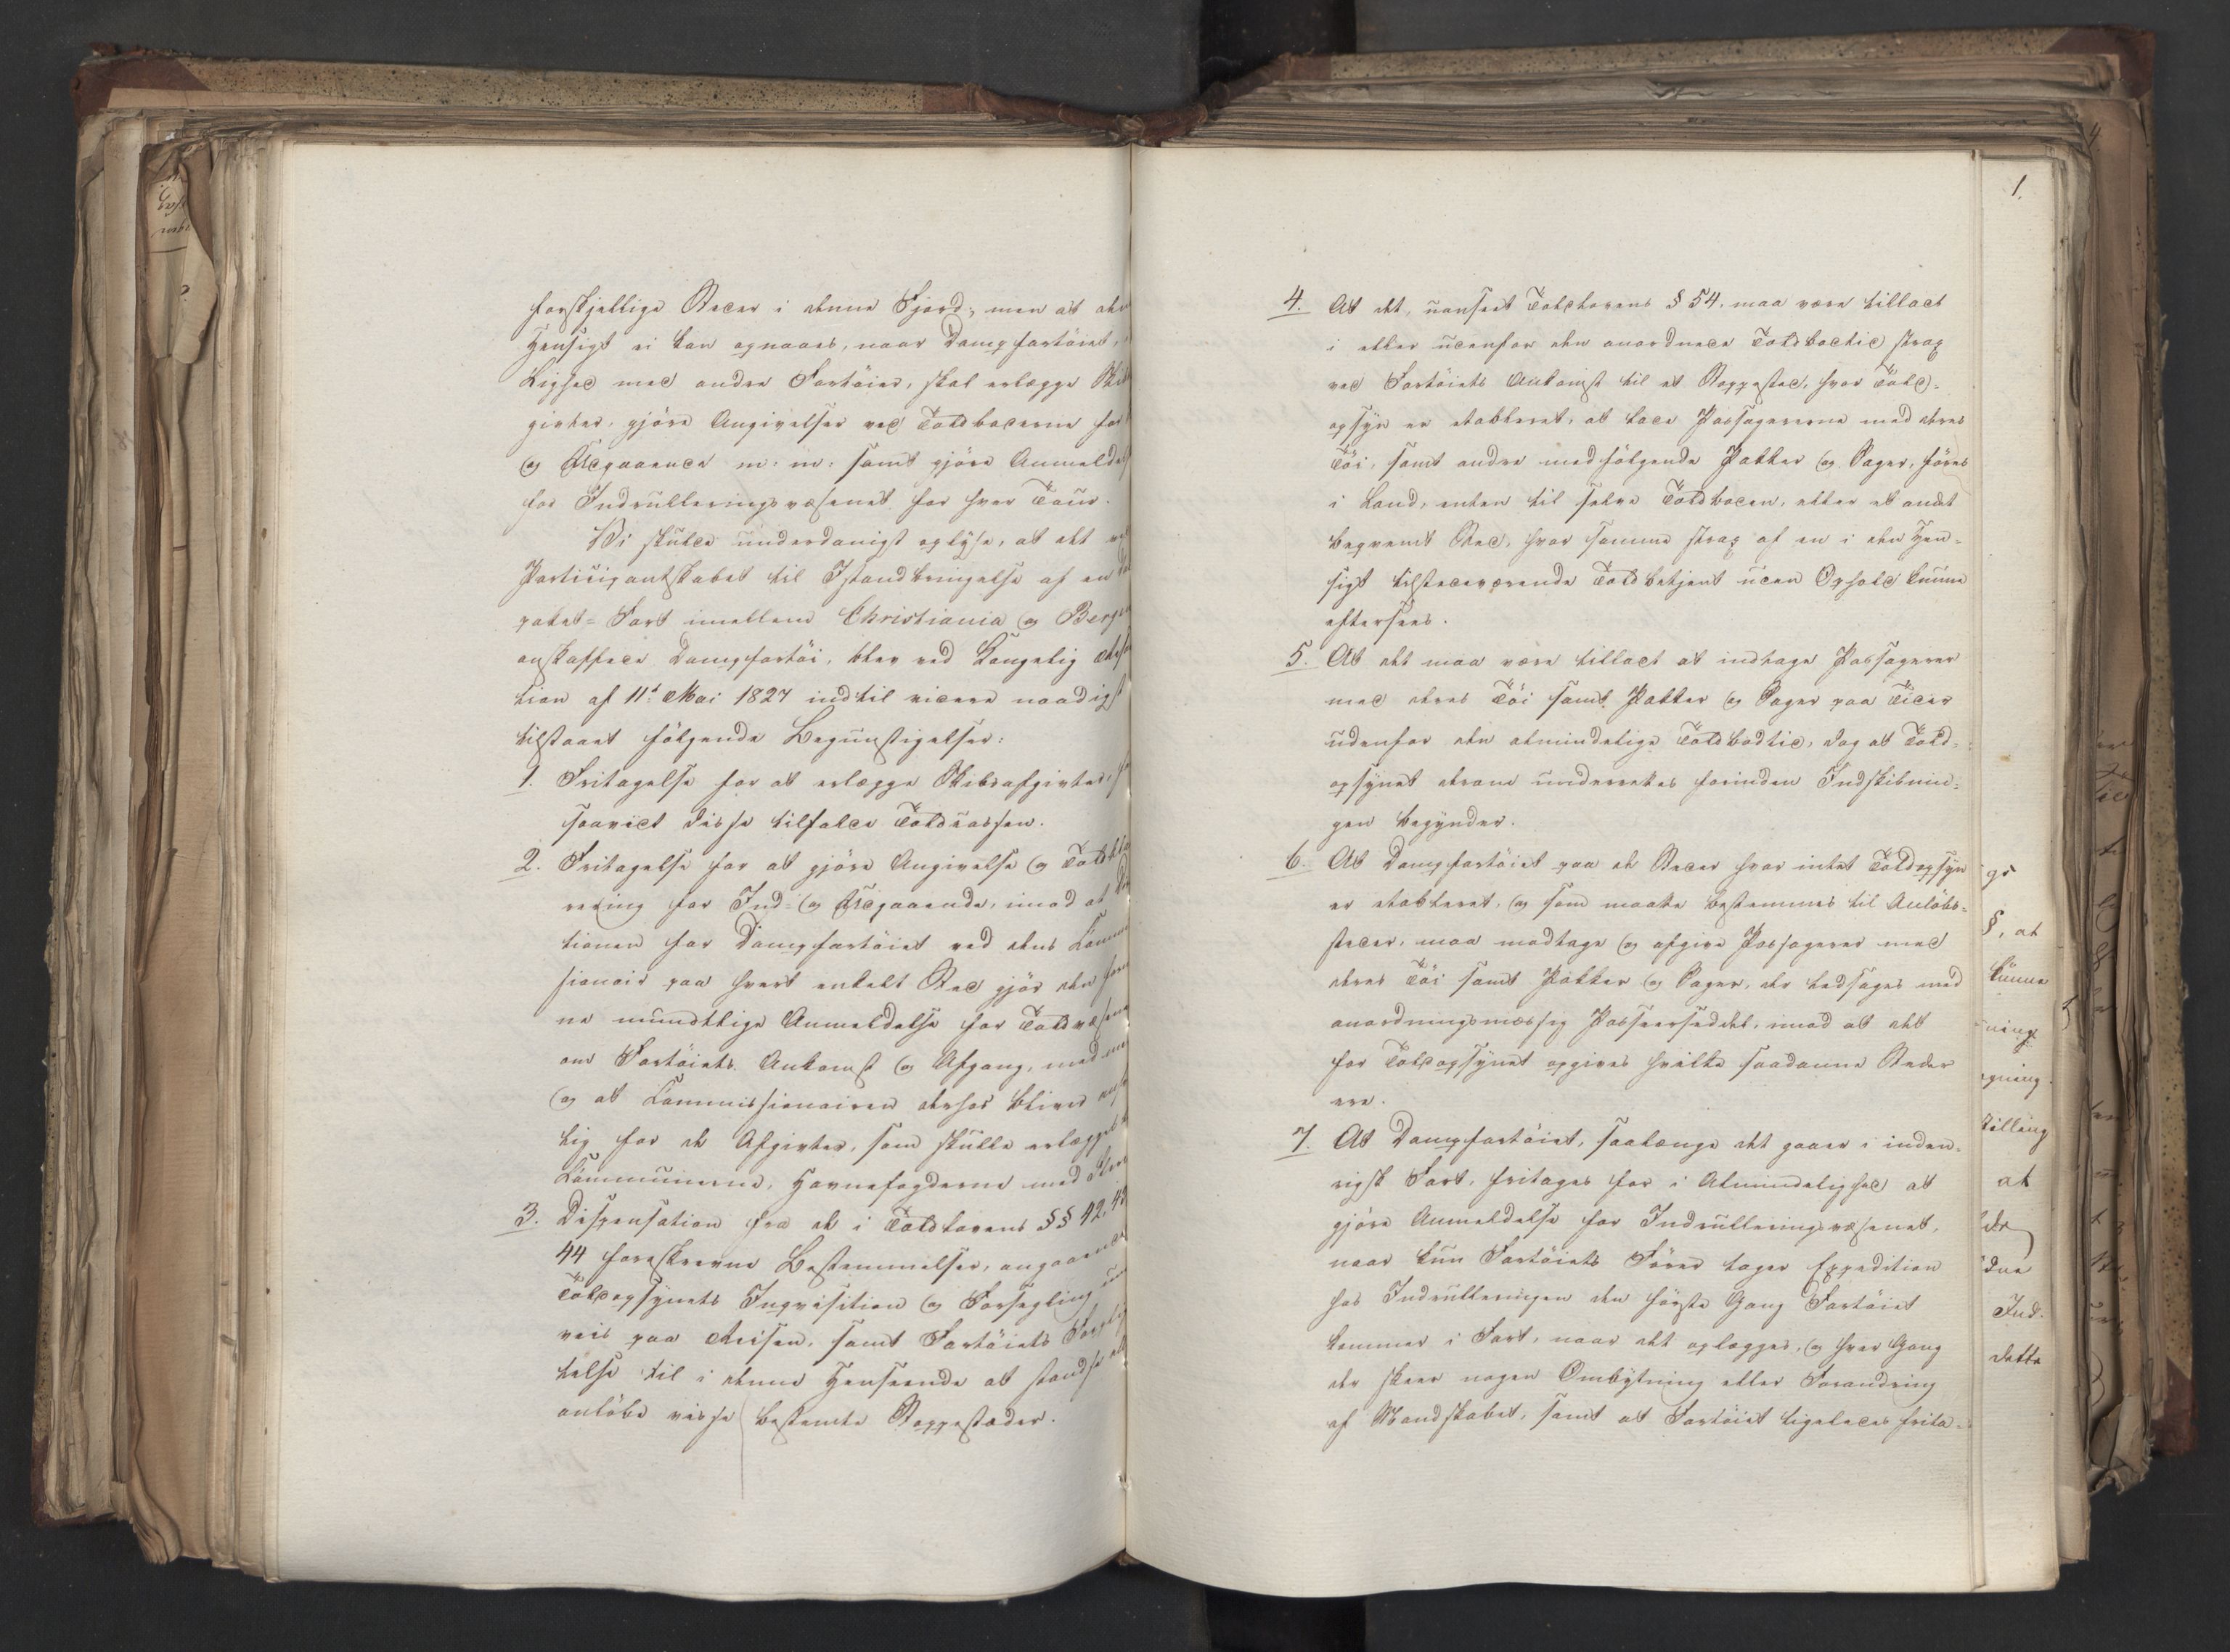 forskjellige Steder i denne Fjord; men at den
Hensigt ei kan opnaaes, naar Dampfartöiet,
Ligesed med andre Fartöier, skal erlægge Skibs
givter, gjöre Angivelser ved Toldboderne for
og Udgaaende m: m: samt gjöre Anmeldel
for Indrulleringsvæsenet for hver Tour.
Vi skulde underdanigst oplyse, at det
Participantskabet til Istandbringelse af en
paket-Fart imellem Christiania og Bergen
anskaffede Dampfartöi, blev ved Kongelig Resolu
tion af 11t Mai 1827 indtil videre naadigst
tilstaaet fölgende Begunstigelser:
1. Fritagelse for at erlægge Skibsafgivter,
saavidt disse tilfalde Toldcassen.
2. Fritagelse for at gjöre Angivelse og Toldkla
rering for Ind- og Udgaaende, imod at
tionen for Dampfartöiet ved dens Commis
sionair paa hvert enkelt Sted gjör den
ne mundtlige Anmeldelse for Toldvæsenet
om Fartöiets Ankomst og Afgang, med
og at Commissionairen derhos bliver
lig for de Afgivter, som skulle erlægges
Communerne, Havnefogderne med Flere
3. Dispensation fra de i Toldlovens §§ 42, 43
44 foreskrevne Bestemmelser, angaaende
Toldopsynets Inqvisition og Forsegling
veis paa Reisen, samt Fartöiets Forplig
telse til i denne Henseende at standse
anlöbe visse bestemte Stoppestæder.
4. At det, uanseet Toldlovens § 54. maa være tilladt
i eller udenfor den anordnede Toldbodtid strax
ved Fartöiets Ankomst til et Stoppested, hvor Told-
opsyn er etableret, at lade Passagererne med deres
Töi, samt andre medfölgende Pakker og Sager, föres
i Land, enten til selve Toldboden, eller et andet
beqvemt Sted, hvor samme strax af en i den Hen-
sigt tilstedeværende Toldbetjent uden Ophold kunne
eftersees.
5. At det maa være tilladt at indtage Passagerer
med deres Töi samt Pakker og Sager paa Tider
udenfor den almindelige Toldbodtid, dog at Told-
opsynet derom underrettes forinden Indskibnin-
gen begynder.
6. At Dampfartöiet paa de Steder hvor intet Toldopsyn
er etableret, og som maatte bestemmes til Anlöbs-
steder, maa modtage og afgive Passagerer med
deres Töi samt Pakker og Sager, der ledsages med
anordningsmæssig Passeerseddel, imod at det
for Toldopsynet opgives hvilke saadanne Steder
ere.
7. At Dampfartöiet, saalænge det gaaer i inden-
rigsk Fart, fritages for i Almindelighed at
gjöre Anmeldelse for Indrulleringsvæsenet,
naar kun Fartöiets Förer tager Expedition
hos Indrulleringen den förste Gang Fartöiet
kommer i Fart, naar det oplægges, og hver Gang
der skeer nogen Ombytning eller Forandring
af Mandskabet, samt at Fartöiet ligeledes frita-
1.
gs
§, at
kunne
ning
gning
tilling
at
der
dne
Ind-
dette